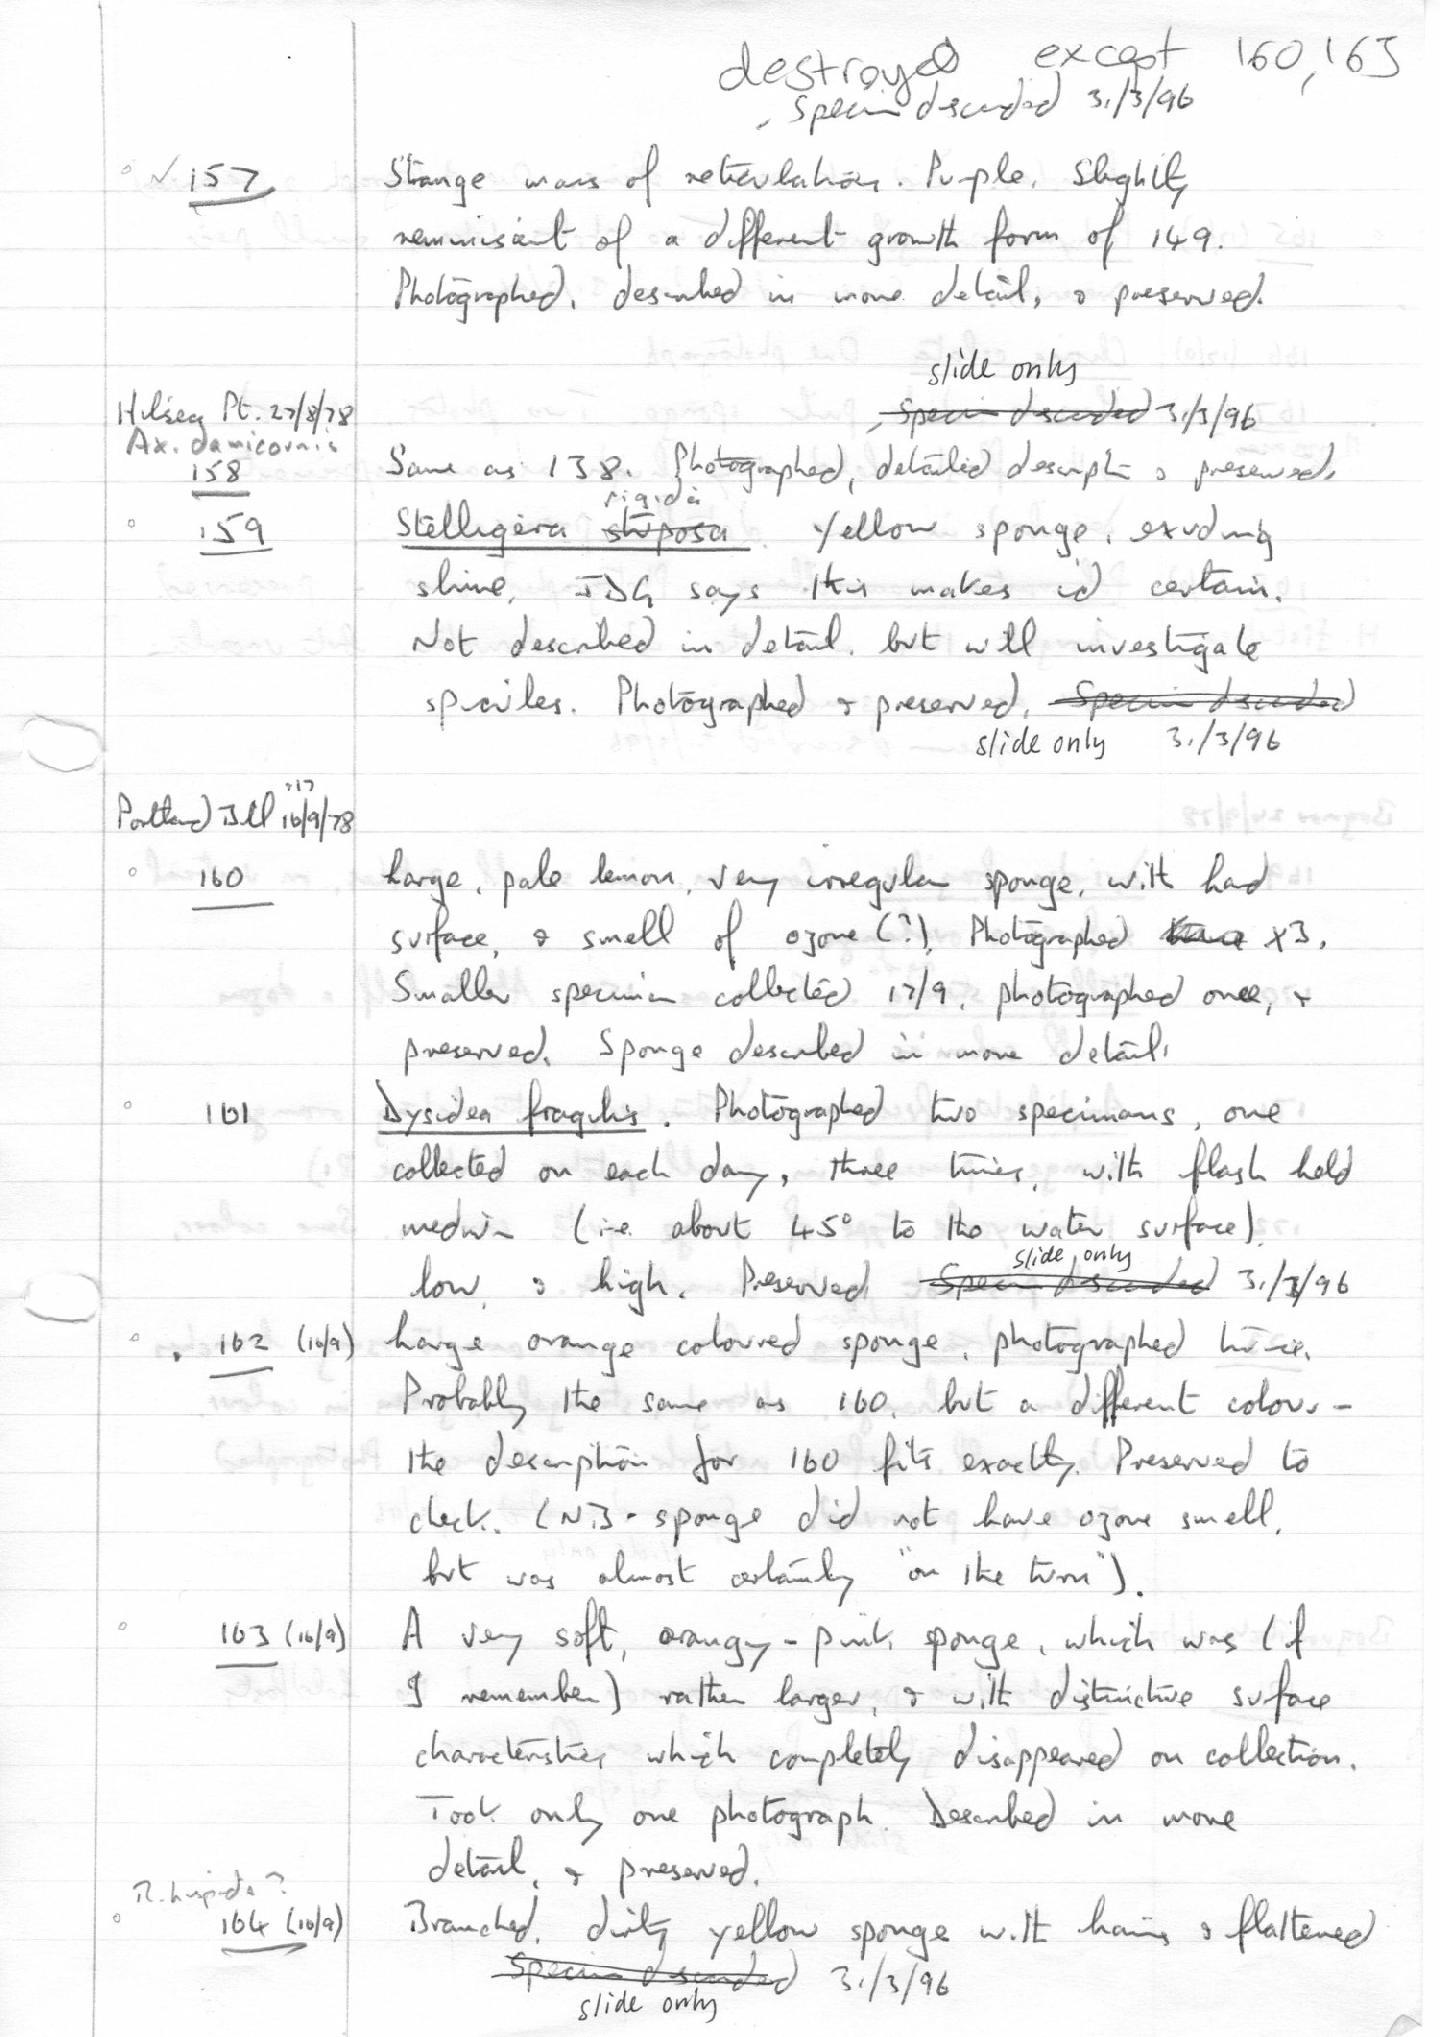 destroyed except 160, 163
Specimen discarded 31/3/96
157 Strange mass of reticulations. Purple. Slightly
reminisant of a different growth form of 149.
Photographed, described in more detail, & preserved.
slide only
Hilsea Pt. 27/8/78 Specimen discarded 31/3/96
Ax. damicornis
158 Same as 138. Photographed, detailed descriptn & preserved.
rigida
159 Stelligera stuposa Yellow sponge, exuding
slime. JDG says this makes id certain.
Not described in detail, but will investigate
spicules. Photographed & preserved. Specimen discarded
slide only 31/3/96
+17
Portland Bill 16/9/78
160 Large, pale lemon, very irregular sponge, with hard
surface, & smell of ozone (?). Photographed x3.
Smaller specimen collected 17/9, photographed once, &
preserved. Sponge described in more detail.
161 Dysidea fragilis. Photographed two specimens, one
collected on each day, three times, with flash held
medium (i.e. about 45° to the water surface)
slide only
low, & high. Preserved Specimen discarded 31/3/96
162 (16/9) Large orange coloured sponge, photographed twice.
Probably the same as 160, but a different colour -
the description for 160 fits exactly. Preserved to
check. (NB - sponge did not have ozone smell,
but was almost certainly "on the turn").
163 (16/9) A very soft, orangy-pink sponge, which was (if
I remember) rather larger, & with distinctive surface
characteristics which completely disappeared on collection.
Took only one photograph. Described in more
detail, & preserved.
R. hispida?
164 (16/9) Branched, dirty yellow sponge with hairs & flattened
Specimen discarded 31/3/96
slide only